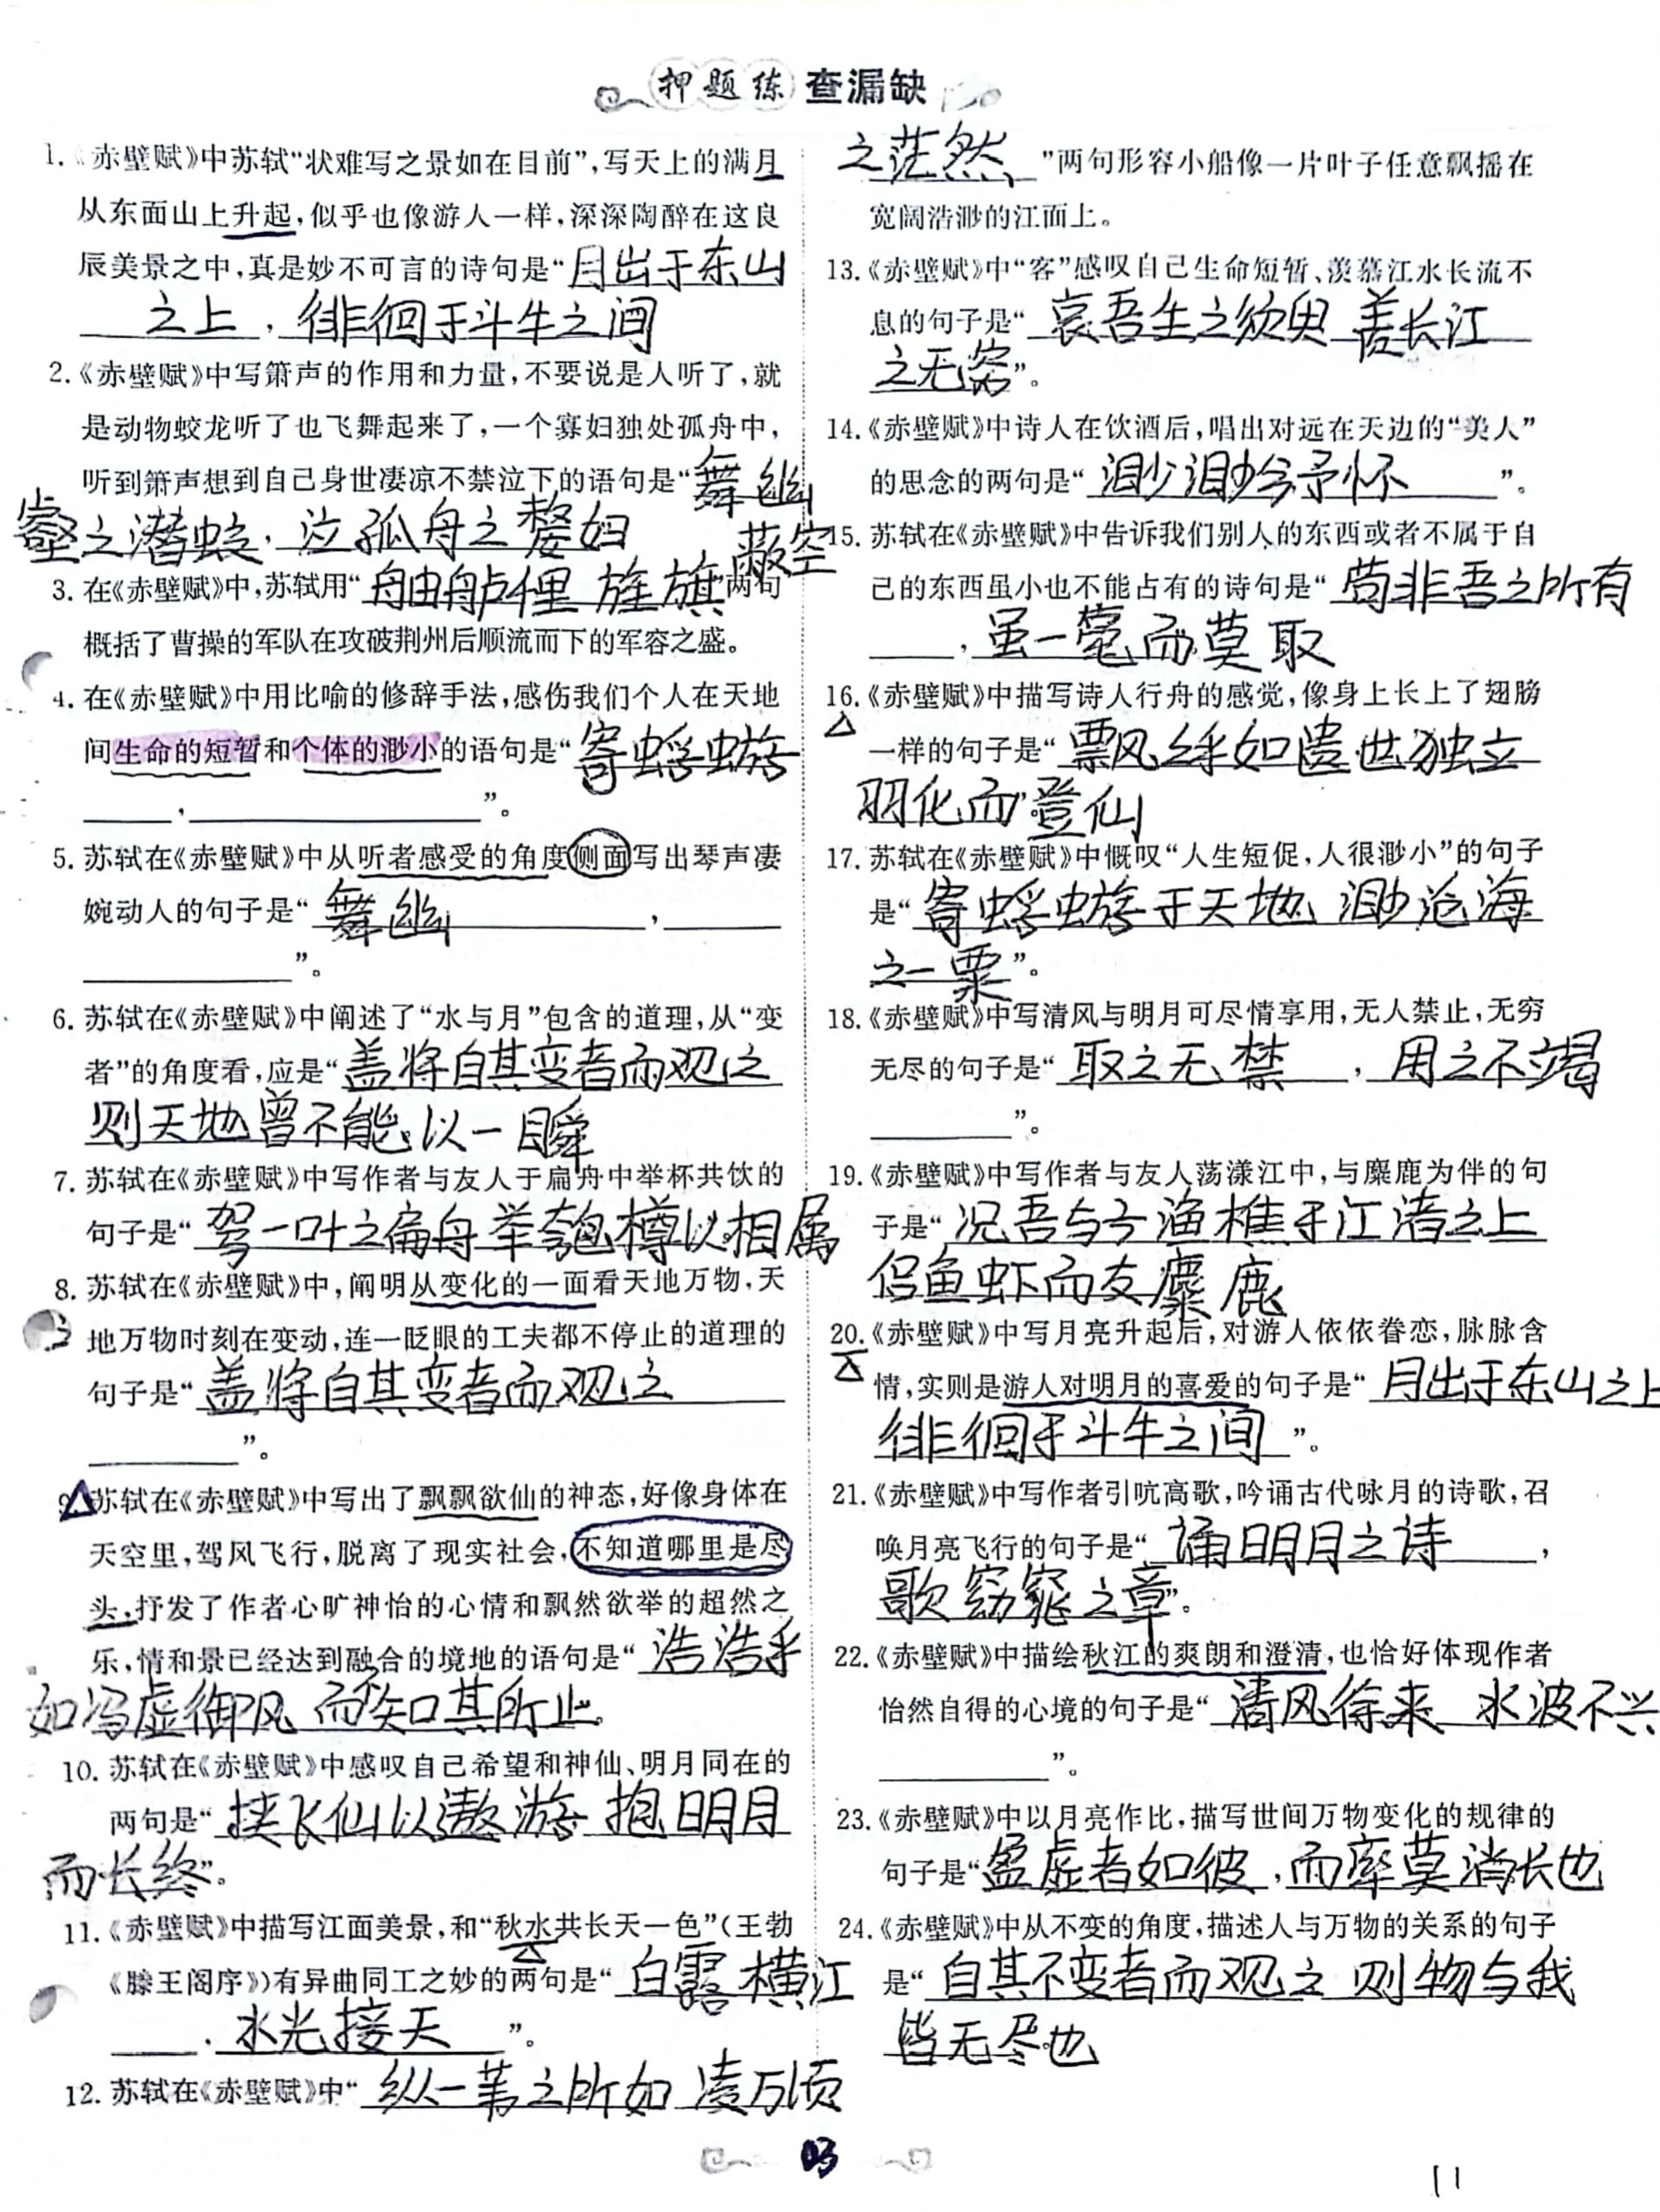 押题练 查漏缺
1.《赤壁赋》中苏轼“状难写之景如在目前”,写天上的满月
从东面山上升起,似乎也像游人一样,深深陶醉在这良
辰美景之中,真是妙不可言的诗句是“月出于东山
之上,徘徊于斗牛之间
2.《赤壁赋》中写箫声的作用和力量,不要说是人听了,就
是动物蛟龙听了也飞舞起来了,一个寡妇独处孤舟中,
听到箫声想到自己身世凄凉不禁泣下的语句是“舞幽
壑之潜蛟,泣孤舟之嫠妇
3.在《赤壁赋》中,苏轼用“舳舻俚 旌旗蔽空”两句
概括了曹操的军队在攻破荆州后顺流而下的军容之盛。
4.在《赤壁赋》中用比喻的修辞手法,感伤我们个人在天地
间生命的短暂和个体的渺小的语句是“寄蜉蝣
,”。
5.苏轼在《赤壁赋》中从听者感受的角度侧面写出琴声凄
婉动人的句子是“舞幽,
”。
6.苏轼在《赤壁赋》中阐述了“水与月”包含的道理,从“变
者”的角度看,应是“盖将自其变者而观之
则天地曾不能以一瞬
7.苏轼在《赤壁赋》中写作者与友人于扁舟中举杯共饮的
句子是“驾一叶之扁舟 举匏樽以相属
8.苏轼在《赤壁赋》中,阐明从变化的一面看天地万物,天
地万物时刻在变动,连一眨眼的工夫都不停止的道理的
句子是“盖将自其变者而观之
”。
9.苏轼在《赤壁赋》中写出了飘飘欲仙的神态,好像身体在
天空里,驾风飞行,脱离了现实社会,不知道哪里是尽
头,抒发了作者心旷神怡的心情和飘然欲举的超然之
乐,情和景已经达到融合的境地的语句是“浩浩乎
如冯虚御风 而不知其所止。
10.苏轼在《赤壁赋》中感叹自己希望和神仙、明月同在的
两句是“挟飞仙以遨游 抱明月
而长终”。
11.《赤壁赋》中描写江面美景,和“秋水共长天一色”(王勃
《滕王阁序》)有异曲同工之妙的两句是“白露横江
,水光接天”。
12.苏轼在《赤壁赋》中“纵一苇之所如 凌万顷
之茫然”两句形容小船像一片叶子任意飘摇在
宽阔浩渺的江面上。
13.《赤壁赋》中“客”感叹自己生命短暂、羡慕江水长流不
息的句子是“哀吾生之须臾 羡长江
之无穷”。
14.《赤壁赋》中诗人在饮酒后,唱出对远在天边的“美人”
的思念的两句是“渺渺兮予怀”。
15.苏轼在《赤壁赋》中告诉我们别人的东西或者不属于自
己的东西虽小也不能占有的诗句是“苟非吾之所有
,虽一毫而莫取
16.《赤壁赋》中描写诗人行舟的感觉,像身上长上了翅膀
一样的句子是“飘飘乎如遗世独立
羽化而登仙
17.苏轼在《赤壁赋》中慨叹“人生短促,人很渺小”的句子
是“寄蜉蝣于天地 渺沧海
之一粟”。
18.《赤壁赋》中写清风与明月可尽情享用,无人禁止,无穷
无尽的句子是“取之无禁,用之不竭
”。
19.《赤壁赋》中写作者与友人荡漾江中,与麋鹿为伴的句
子是“况吾与子渔樵于江渚之上
侣鱼虾而友麋鹿
20.《赤壁赋》中写月亮升起后,对游人依依眷恋,脉脉含
情,实则是游人对明月的喜爱的句子是“月出于东山之上
徘徊于斗牛之间”。
21.《赤壁赋》中写作者引吭高歌,吟诵古代咏月的诗歌,召
唤月亮飞行的句子是“诵明月之诗,
歌窈窕之章”。
22.《赤壁赋》中描绘秋江的爽朗和澄清,也恰好体现作者
怡然自得的心境的句子是“清风徐来 水波不兴
”。
23.《赤壁赋》中以月亮作比,描写世间万物变化的规律的
句子是“盈虚者如彼,而卒莫消长也
24.《赤壁赋》中从不变的角度,描述人与万物的关系的句子
是“自其不变者而观之 则物与我
皆无尽也
03
11